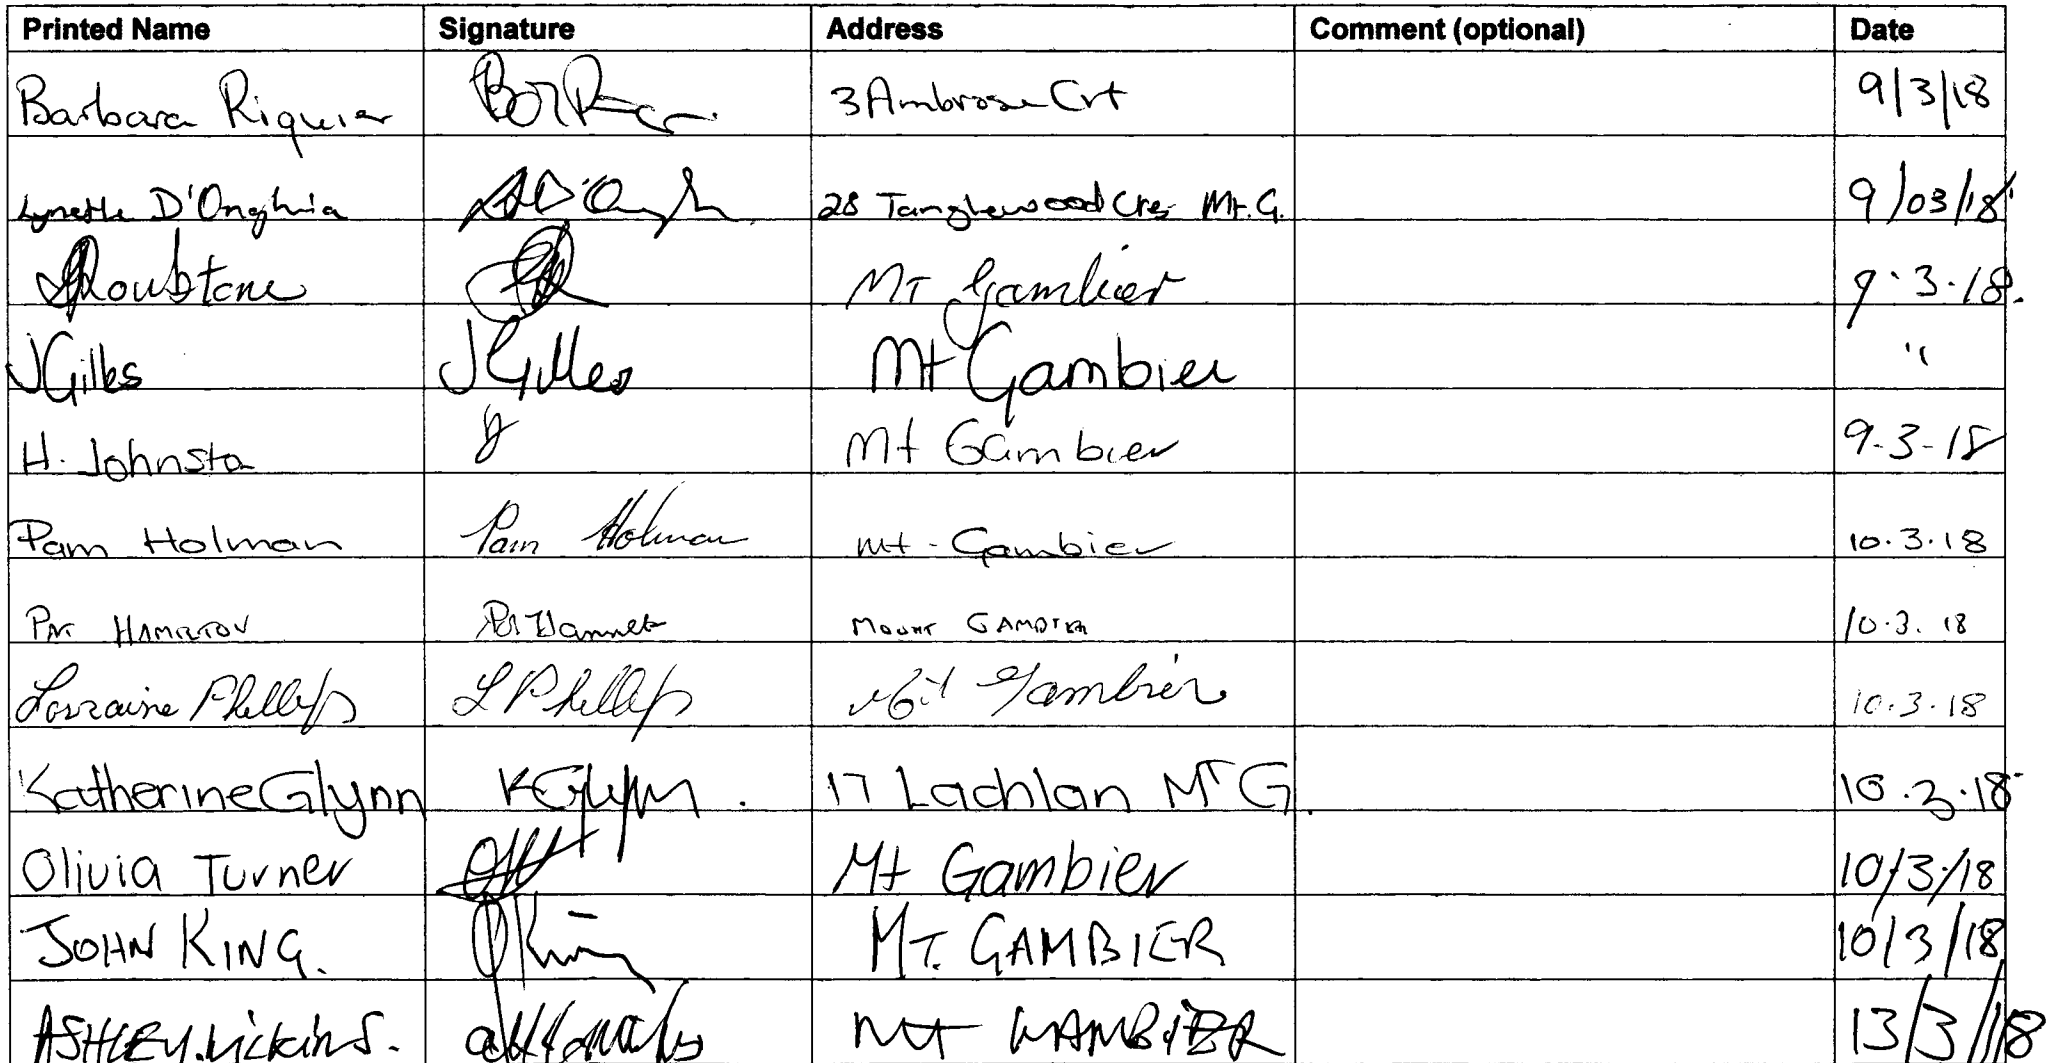 Printed Name Signature Address Comment (optional) Date
Barbara Riquier 3 Ambrose Crt 9/3/18
Lynette D'Onghia 28 Tanglewood Cres Mt. G. 9/03/18
Mt Gambier 9.3.18.
JGilles JGilles Mt Gambier "
H. Johnsto Mt Gambier 9-3-18
Pam Holman Pam Holman Mt - Gambier 10.3.18
PAT HAMILTON MOUNT GAMBIER 10.3.18
Lorraine Phillips L Phillips Mt Gambier 10.3.18
Katherine Glynn KGlynn. 17 Lachlan Mt G. 10.3.18
Olivia Turner Mt Gambier 10/3/18
JOHN KING. JKing MT. GAMBIER 10/3/18
ASHLEY. Mt GAMBIER 13/3/18